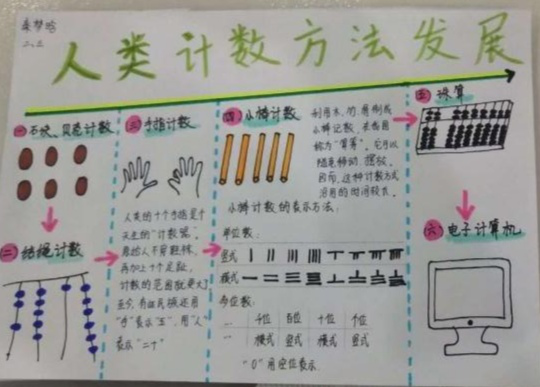 人类计数方法发展
二、五
一 石块、贝壳计数
二 结绳计数
三 手指计数
人类的十个手指是个
天生的“计数器”。
原始人不穿鞋袜,
再加上十个足趾,
计数的范围就更大了
至今,有些民族还用
“手”表示“五”,用“人”
表示“二十”
四 小棒计数
利用木、竹、骨制成
小棒记数,在我国
称为“算筹”。它可以
随意移动、摆放,
因而,这种计数方式
沿用的时间较长。
小棒计数的表示方法:
单位数:
竖式
横式
多位数:
千位 百位 十位 个位
横式 竖式 横式 竖式
“0”用空位表示.
五 珠算
六 电子计算机